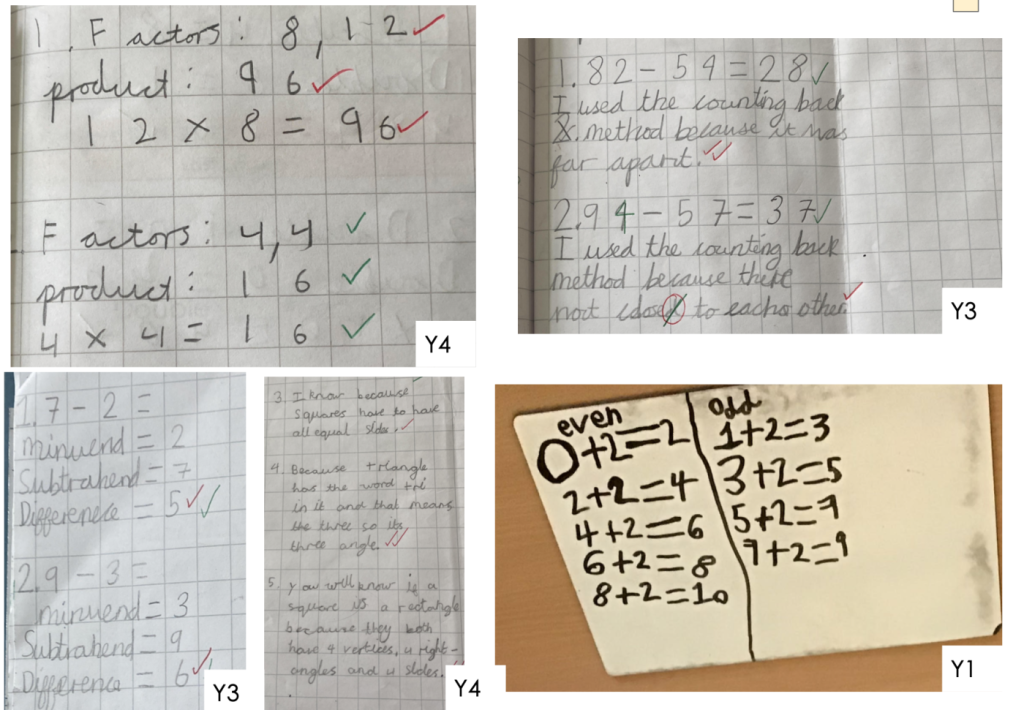 1. Factors: 8, 12
product: 96
12 x 8 = 96
Factors: 4,4
product: 16
4 x 4 = 16
Y4
1. 82 - 54 = 28
I used the counting back
method because it was
far apart.
2. 94 - 57 = 37
I used the counting back
method because there
not close to eacho other.
Y3
1. 7 - 2 =
minuend = 2
Subtrahend = 7
Difference = 5
2. 9 - 3 =
minuend = 3
Subtrahend = 9
Difference = 6
Y3
3. I know because
squares have to have
all equal sides.
4. Because triangle
has the word tri
in it and that means
the three so its
three angle.
5. You will know is a
square is a rectangle
because they both
have 4 vertices, 4 right-
angles and 4 sides.
Y4
even
0+2=2
2+2=4
4+2=6
6+2=8
8+2=10
odd
1+2=3
3+2=5
5+2=7
7+2=9
Y1